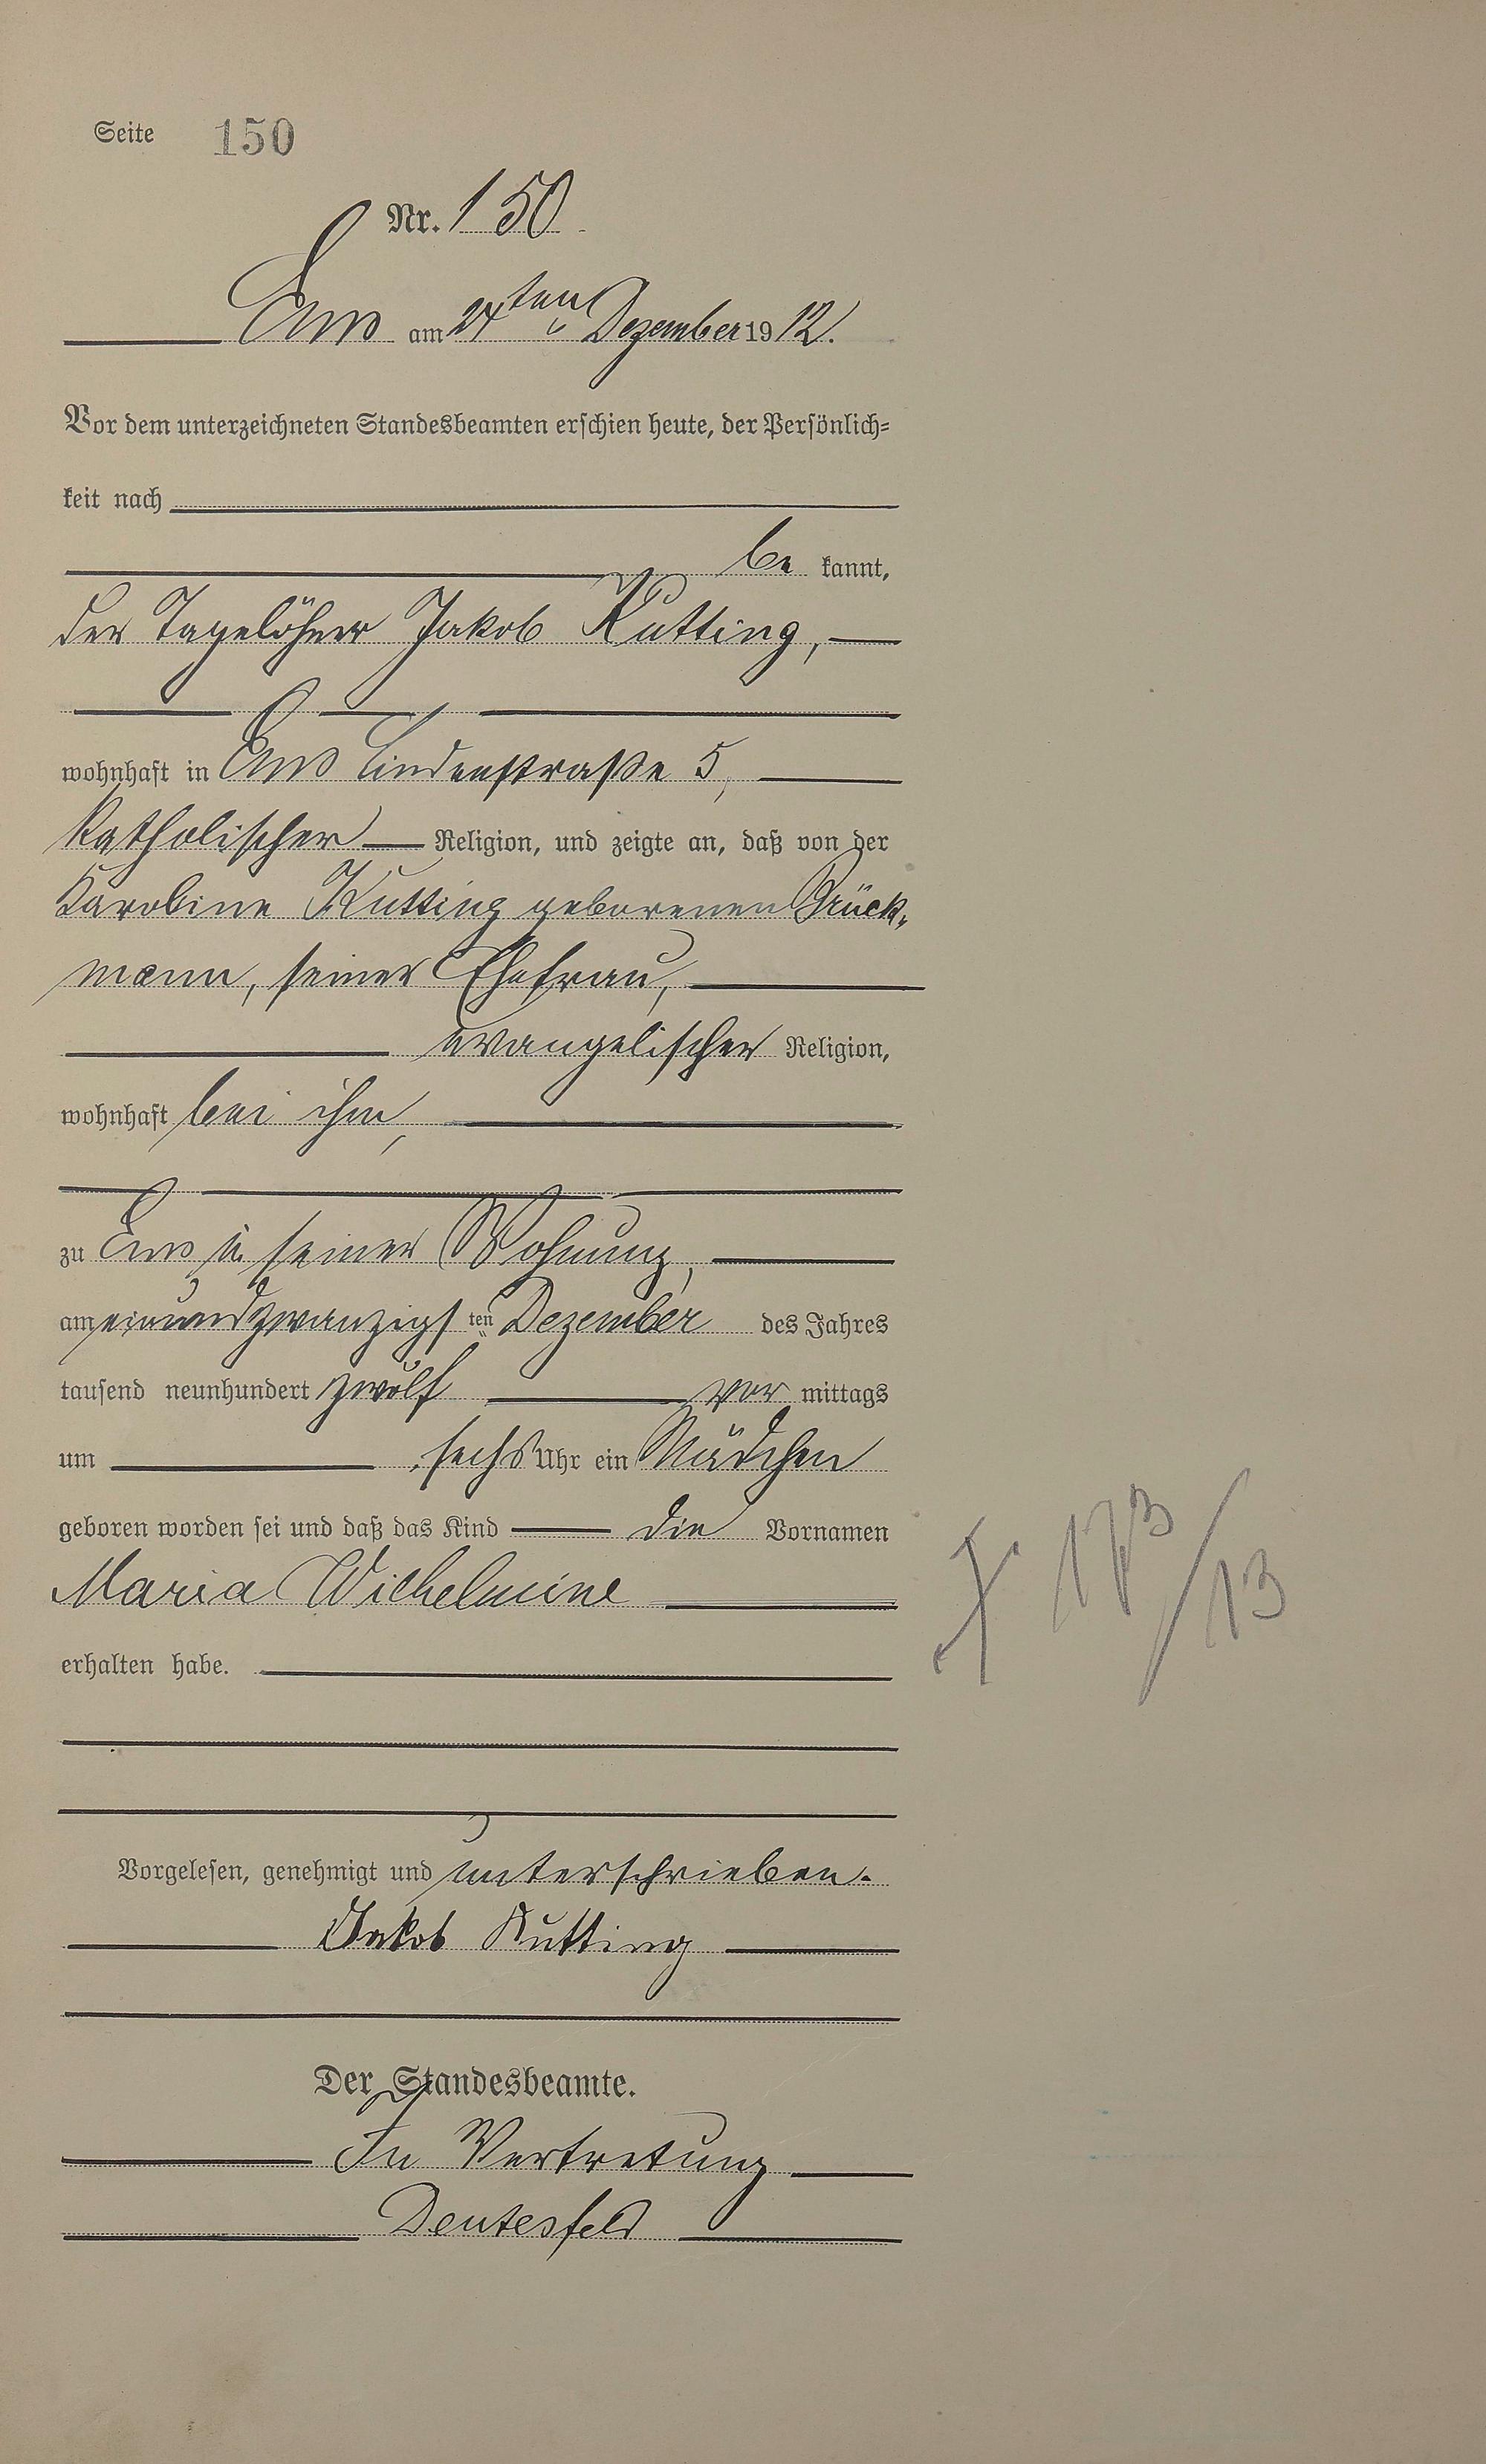 Seite 150
Nr. 150
Ems am 24ten Dezember 1912.
Vor dem unterzeichneten Standesbeamten erschien heute, der Persönlich=
keit nach
be kannt,
der Tagelöhner Jakob Kutting,
wohnhaft in Ems Lindenstraße 5,
katholischer Religion, und zeigte an, daß von der
Karoline Kutting geborenen Brück-
mann, seiner Ehefrau,
evangelischer Religion,
wohnhaft bei ihm,
zu Ems in seiner Wohnung,
am einundzwanzigsten Dezember des Jahres
tausend neunhundert zwölf vor mittags
um sechs Uhr ein Mädchen
geboren worden sei und daß das Kind die Vornamen
Maria Wilhelmine
erhalten habe.
† 17 3/13
Vorgelesen, genehmigt und unterschrieben.
Jakob Kutting
Der Standesbeamte.
In Vertretung
Deutesfeld